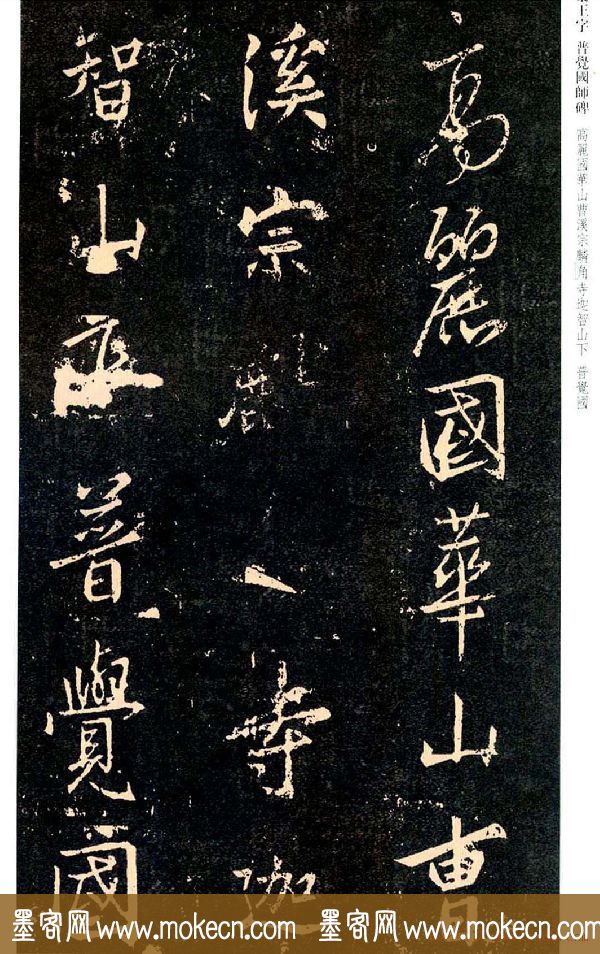 王字 普覺國師碑 高麗國華山曹溪宗麟角寺迦智山下 普覺國
高麗國華山曹
溪宗麟寺迦
智山下普覺國
墨客网 www.mokecn.com 墨客网 www.mokecn.com